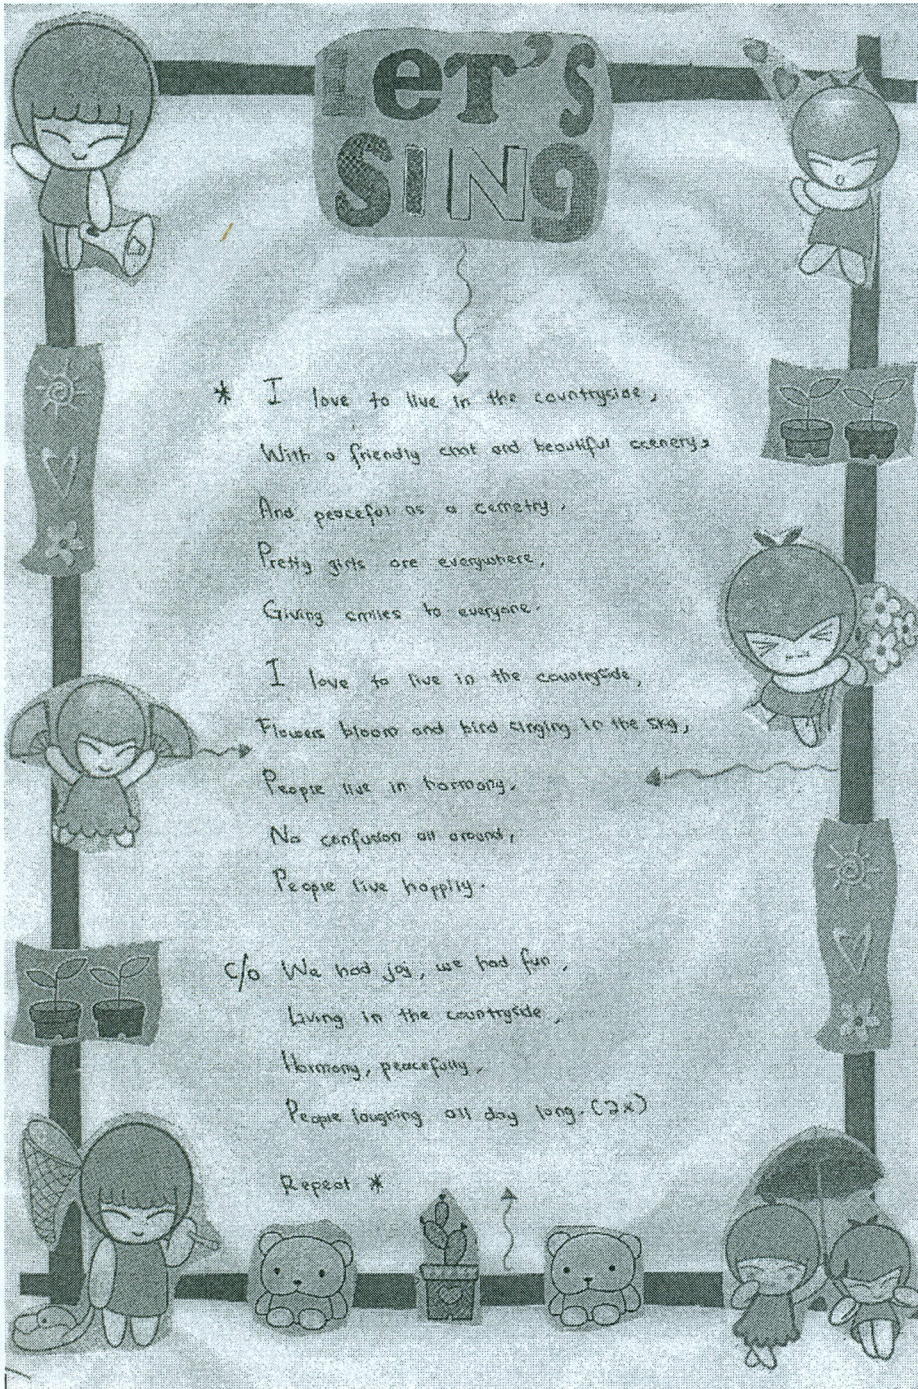 LET'S
SING
* I love to live in the countryside,
With a friendly chat and beautiful scenery,
And peaceful as a cemetry,
Pretty girls are everywhere,
Giving smiles to everyone.
I love to live in the countryside,
Flowers bloom and bird singing in the sky,
People live in harmony,
No confusion all around,
People live happily.
C/o We had joy, we had fun,
Living in the countryside,
Harmony, peacefully,
People laughing all day long. (2x)
Repeat *